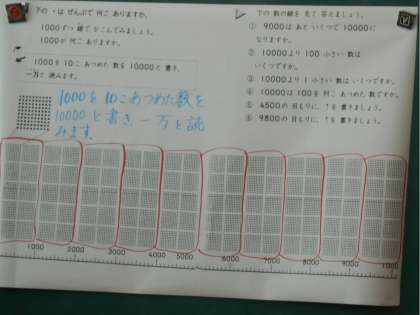 下の ・は ぜんぶで 何こ ありますか。
1000ずつ 線で かこんでみましょう。
1000が 何こ ありますか。
1000を 10こ あつめた 数を 10000と 書き、
一万と 読みます。
1000を10こあつめた数を
10000と書き、一万と読
みます
下の 数の線を 見て 答えましょう。
① 9000は あと いくつで 10000に
なりますか。
② 10000より 100 小さい 数は
いくつですか。
③ 10000より 1 小さい 数は いくつですか。
④ 10000は 100を 何こ あつめた 数ですか。
⑤ 4500の 目もりに、↑を 書きましょう。
⑥ 9800の 目もりに、↑を 書きましょう。
1000 2000 3000 4000 5000 6000 7000 8000 9000